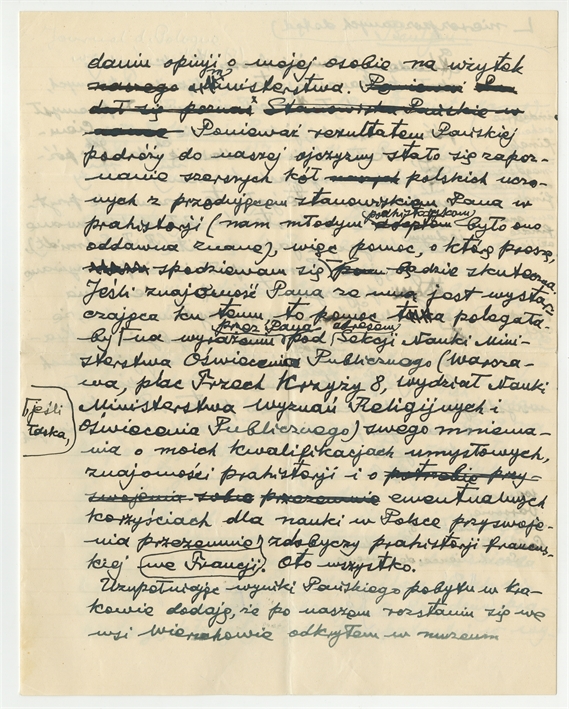 daniu opinji o mojej osobie na wzytek
naszego Ministerstwa. Ponieważ Pan
dał się poznać Stanowisko Pańskie w
Ponieważ rezultatem Pańskiej
podróży do naszej ojczyzny stało się zapoz-
nanie szerszych kół polskich uczo-
nych z przodującem stanowiskiem Pana w
prahistorji (nam młodym prahistorykom adeptom było ono
oddawna znane), więc pomoc, o którą proszę,
spodziewam się, będzie skuteczna.
Jeśli znajomość Pana ze mną jest wystar-
czająca ku temu to pomoc ta polegała-
by na wyrażeniu przez Pana pod adresem Sekcji Nauki Mini-
sterstwa Oświecenia Publicznego (Warsza-
wa, plac Trzech Krzyży 8, Wydział Nauki
jeśli
łaska,
Ministerstwa Wyznań Religijnych i
Oświecenia Publicznego) swego mniema-
nia o moich kwalifikacjach umysłowych,
znajomości prahistorji i o potrzebie przy-
swojenia sobie przezemnie ewentualnych
korzyściach dla nauki w Polsce przyswoje-
nia przezemnie zdobyczy prahistorji francus-
kiej we Francji. Oto wszystko.
Uzupełniając wyniki Pańskiego pobytu w Kra-
kowie dodaję, że po naszem rozstaniu się we
wsi Wierzchowie odkryłem w muzeum